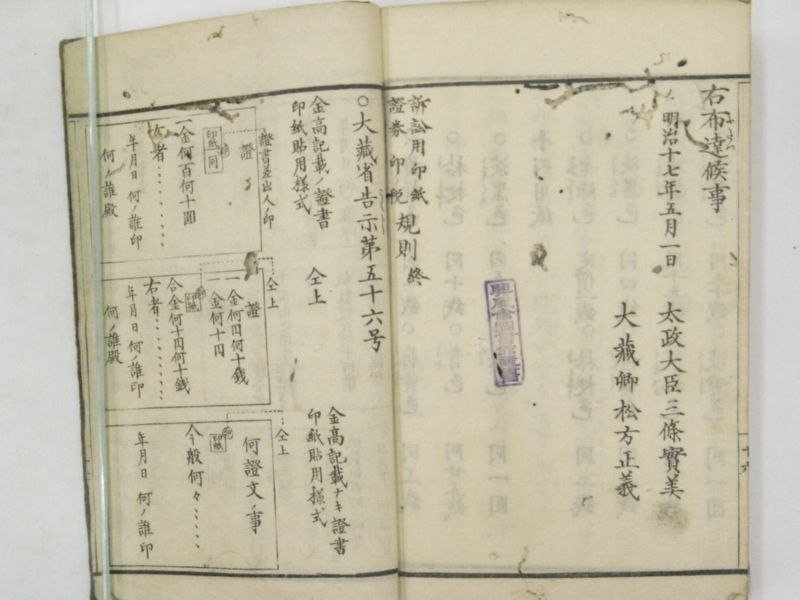 右布達候事
明治十七年五月一日
太政大臣三條實美
大藏卿松方正義
訴訟用印紙
證券印税
規則終
○大藏省告示第五十六号
金高記載ノ證書
印紙貼用様式
仝上
金高記載ナキ證書
印紙貼用様式
證書差出人ノ印
證
印紙
一金何百何十圓
右者……
年月日 何ノ誰印
何ノ誰殿
仝上
證
一金何円何十銭
一金何十円
印紙
合金何十円何十銭
右者……
年月日 何ノ誰印
何ノ誰殿
仝上
何證文ノ事
印紙
今般何々……
年月日 何ノ誰印
十六